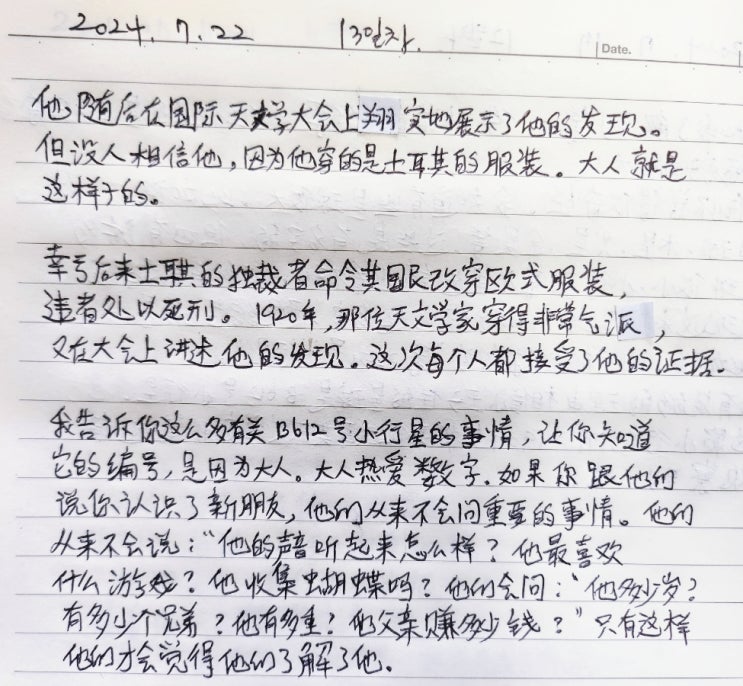 2024. 7. 22 13일차.
Date.
他随后在国际天文学大会上翔实地展示了他的发现。
但没人相信他，因为他穿的是土耳其的服装。大人就是
这样子的。
幸亏后来土耳其的独裁者命令其国民改穿欧式服装，
违者处以死刑。1920年，那位天文学家穿得非常气派，
又在大会上讲述他的发现。这次每个人都接受了他的证据.
我告诉你这么多有关B612号小行星的事情，让你知道
它的编号，是因为大人。大人热爱数字.如果你跟他们
说你认识了新朋友，他们从来不会问重要的事情。他们
从来不会说："他的声音听起来怎么样？他最喜欢
什么游戏？他收集蝴蝶吗？他们会问："他多少岁？
有多少个兄弟？他有多重？他父亲赚多少钱？"只有这样
他们才会觉得他们了解了他.